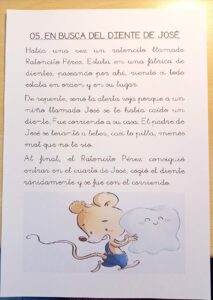 05. EN BUSCA DEL DIENTE DE JOSÉ
Había una vez un ratoncito llamado
Ratoncito Pérez. Estaba en una fábrica de
dientes, paseando por ahí, viendo si todo
estaba en orden y en su lugar.
De repente, sonó la alerta roja porque a un
niño llamado José se le había caído un
diente. Fue corriendo a su casa. El padre de
José se levantó a beber, casi lo pilla, menos
mal que no le vio.
Al final, el Ratoncito Pérez consiguió
entrar en el cuarto de José, cogió el diente
rápidamente y se fue con él corriendo.